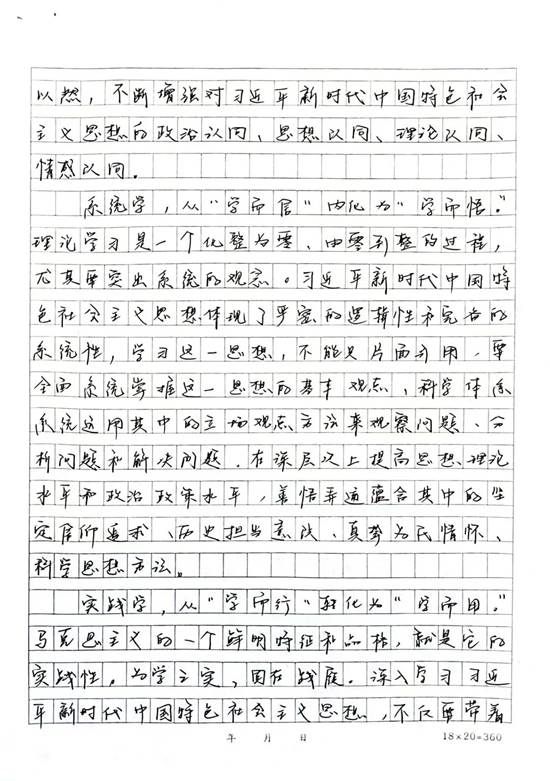 以然，不断增强对习近平新时代中国特色社会
主义思想的政治认同、思想认同、理论认同、
情感认同。
系统学，从“学而信”内化为“学而悟。”
理论学习是一个化整为零、由零到整的过程，
尤其要突出系统的观念。习近平新时代中国特
色社会主义思想体现了严密的逻辑性和完备的
系统性，学习这一思想，不能只片面引用，要
全面系统掌握这一思想的基本观点、科学体系
系统运用其中的立场观点方法来观察问题、分
析问题和解决问题，在深层次上提高思想理论
水平和政治政策水平，着悟弄通蕴含其中的坚
定信仰追求、历史担当意识、真挚为民情怀、
科学思想方法。
实践学，从“学而行”转化为“学而用。”
马克思主义的一个鲜明特征和品格，就是它的
实践性。为学之实，固在践履。深入学习习近
平新时代中国特色社会主义思想，不仅要带着
年 月 日 18×20=360